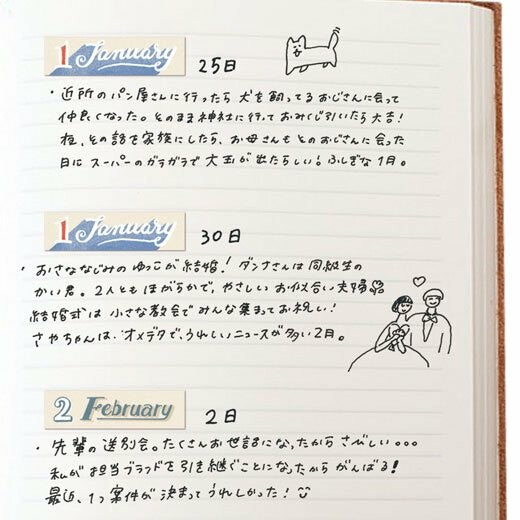 1 January 25日
・近所のパン屋さんに行ったら 犬を飼ってる おじさんに会って
仲良くなった。そのまま神社に行って おみくじ引いたら 大吉!
夜、その話を家族にしたら、お母さんも そのおじさんに会った
日に スーパーの ガラガラで 大玉が出たらしい!ふしぎな1月。
1 January 30日
・おさななじみの ゆっこが 結婚!ダンナさんは 同級生の
かい君。2人とも ほがらかで、やさしい お似合い夫婦
結婚式は 小さな教会で みんな集まって お祝い!
さやちゃんは、オメデタで、うれしいニュースが 多い2月。
2 February 2日
・先輩の送別会。たくさんお世話になったから さびしい。。。
私が お担当ブランドを引き継ぐことになったから がんばる!
最近、1つ案件が 決まって うれしかった!